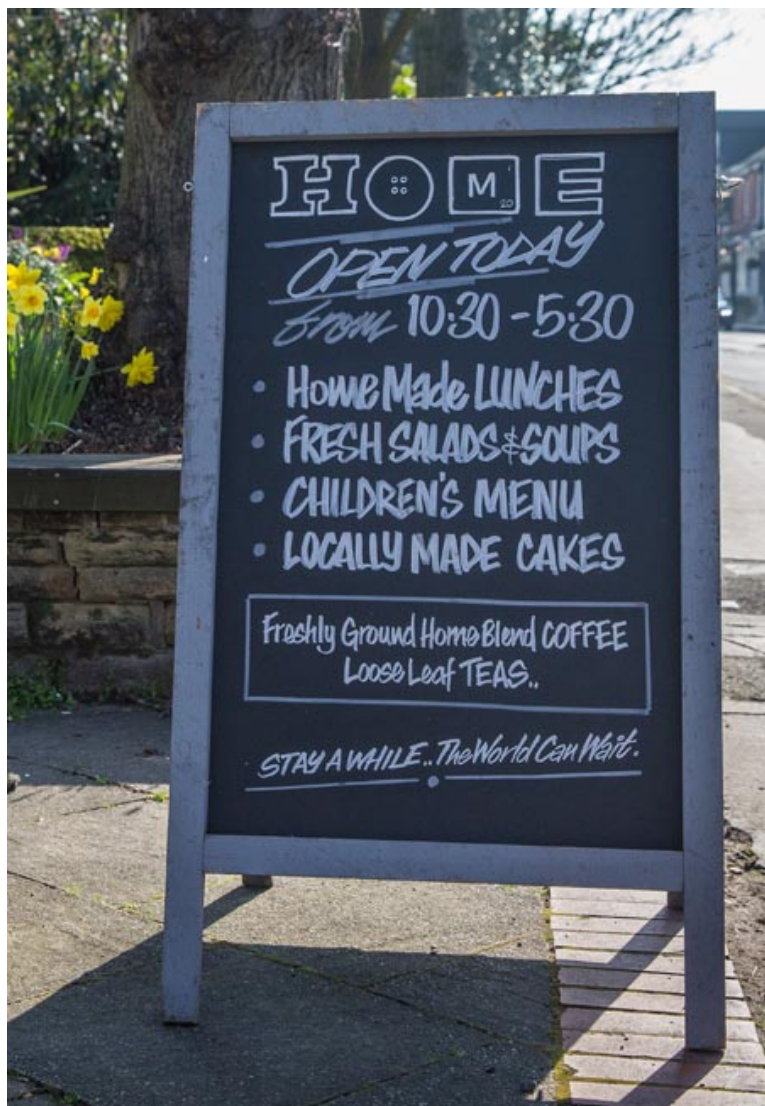 HOME
20
OPEN TODAY
from 10:30 - 5:30
• Home Made LUNCHES
• FRESH SALADS & SOUPS
• CHILDREN'S MENU
• LOCALLY MADE CAKES
Freshly Ground Home Blend COFFEE
Loose Leaf TEAS..
STAY A WHILE.. The World Can Wait.